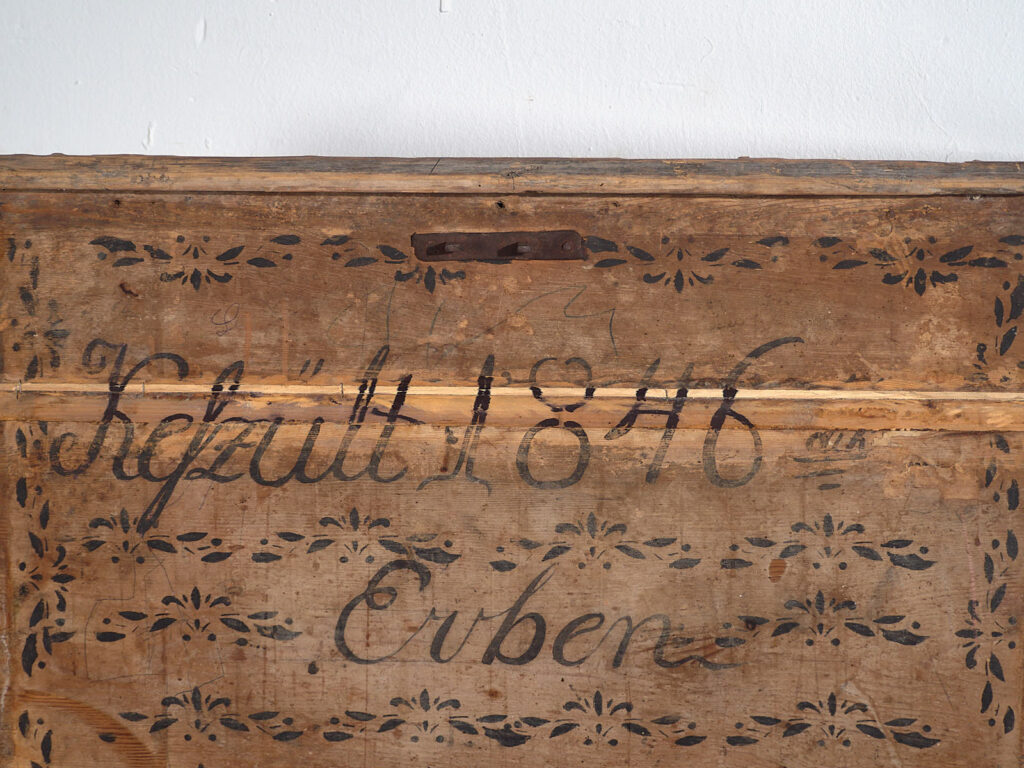 Keſzült 1846
Evben